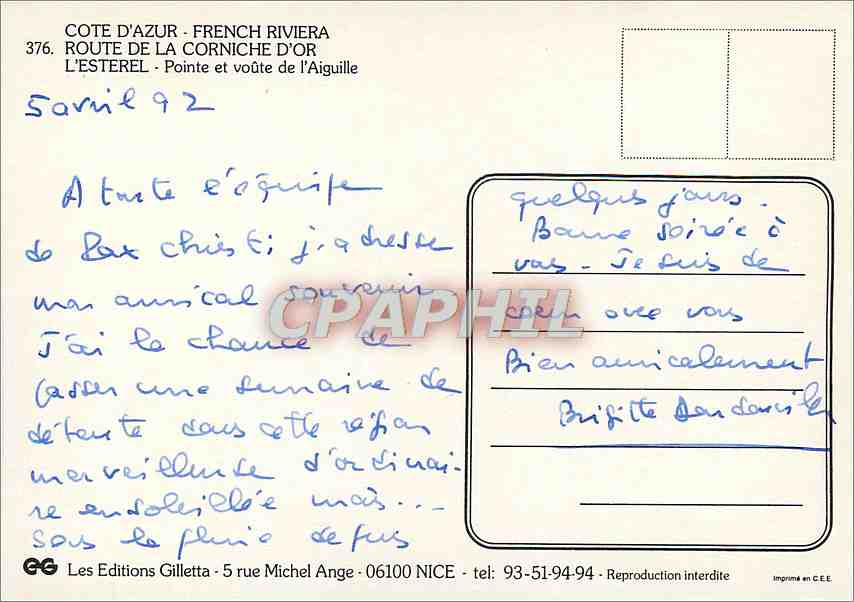 COTE D'AZUR - FRENCH RIVIERA
376. ROUTE DE LA CORNICHE D'OR
L'ESTEREL - Pointe et voûte de l'Aiguille
5 avril 92
A toute l'équipe
de Pax Christi j'adresse
mon amical souvenir
J'ai la chance de
passer une semaine de
détente dans cette région
merveilleuse d'ordinai-
re ensoleillée mais...
sous la pluie depuis
quelques jours.
Bonne soirée à
vous - Je suis de
coeur avec vous
Bien amicalement
Brigitte
CPAPHIL
EG Les Editions Gilletta - 5 rue Michel Ange - 06100 NICE - tel: 93-51-94-94 - Reproduction interdite
Imprimé en C.E.E.